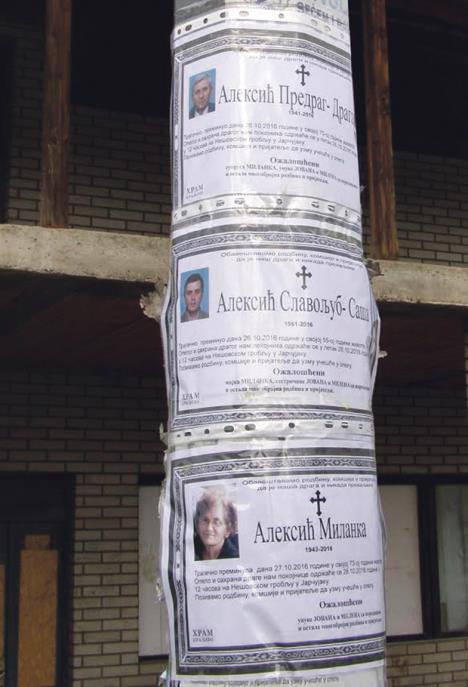 да је наш драги и никада прежаљени
Алексић Предраг- Драга
1941-2016
Трагично, преминуо дана 26.10.2016 године у својој 75-ој години
Опело и сахрана драгог нам покојника одржаће се у петак 28.10.2016
у 12 часова на Нешовском гробљу у Јарчујаку.
Позивамо родбину, комшије и пријатеље да узму учешће у опелу.
Ожалошћени
супруга МИЛАНКА, унуке ЈОВАНА и МИЛЕНА са породицама
и остала многобројна родбина и пријатељи.
ХРАМ
КРАЉЕВО
Обавештавамо родбину, комшије и пријатеље
да је наш драги и никада прежаљени
Алексић Славољуб- Саша
1961-2016
Трагично преминуо дана 26.10.2016 године у својој 55-ој години живота
Опело и сахрана драгог нам покојника одржаће се у петак 28.10.2016
у 12 часова на Нешовском гробљу у Јарчујаку.
Позивамо родбину, комшије и пријатеље да узму учешће у опелу.
Ожалошћени
мајка МИЛАНКА, сестричине ЈОВАНА и МИЛЕНА са породицама
и остала многобројна родбина и пријатељи.
ХРАМ
КРАЉЕВО
Обавештавамо родбину, комшије и пријатеље
да је наша драга и никада прежаљена
Алексић Миланка
1943-2016
Трагично преминула дана 27.10.2016 године у својој 73-ој години
Опело и сахрана драге нам покојнице одржаће се 28.10.2016 године у
12 часова на Нешовском гробљу у Јарчујаку.
Позивамо родбину, комшије и пријатеље да узму учешће у опелу.
Ожалошћени
унуке ЈОВАНА и МИЛЕНА са породицама
и остала многобројна родбина и пријатељи.
ХРАМ
КРАЉЕВО